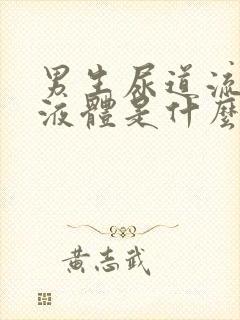 男生尿道流
液體是什麼
黃志武